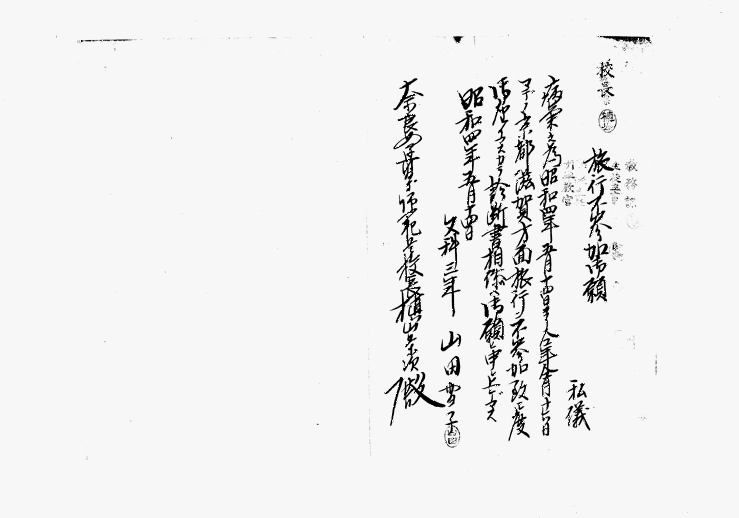 校長
旅行不参加御願
私儀
病気之為昭和四年五月十四日ヨリ仝年仝月十六日
マデ京都滋賀方面旅行ニ不参加致シ度
診断書相添ヘ御願申上ゲマス
昭和四年五月十四日
文科三年 山田
奈良女子高等師範学校長槇山栄次殿